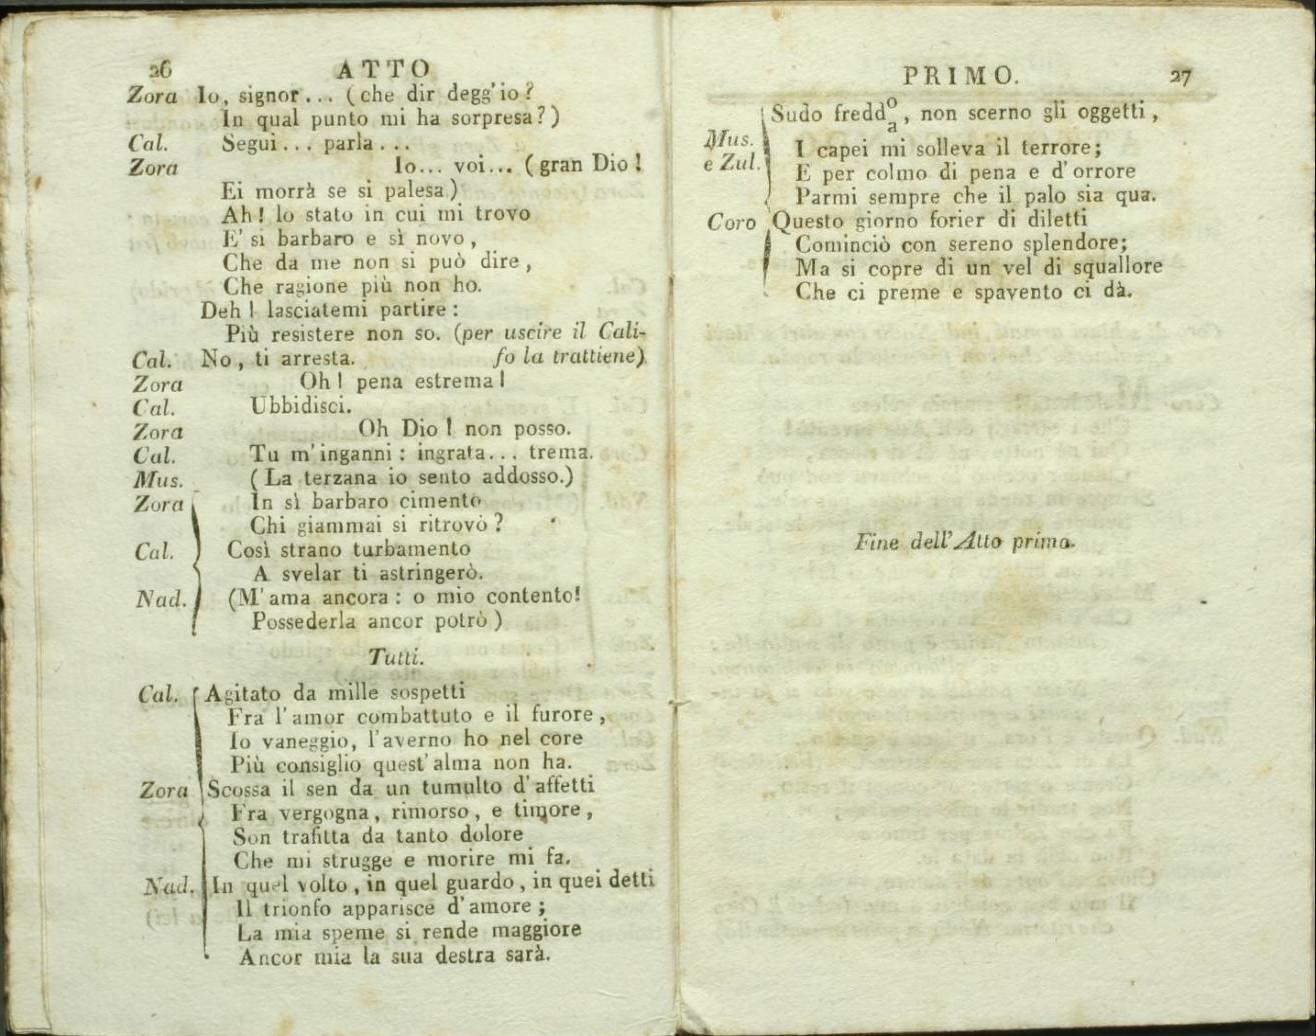 26 ATTO
Zora Io, signor... (che dir degg'io?
In qual punto mi ha sorpresa?)
Cal. Segui... parla...
Zora Io... voi... (gran Dio!
Ei morrà se si palesa.)
Ah! lo stato in cui mi trovo
E' sì barbaro e sì novo,
Che da me non si può dire,
Che ragione più non ho.
Deh! lasciatemi partire:
Più resistere non so. (per uscire il Cali-
Cal. No, ti arresta. fo la trattiene)
Zora Oh! pena estrema!
Cal. Ubbidisci.
Zora Oh Dio! non posso.
Cal. Tu m'inganni: ingrata... trema.
Mus. (La terzana io sento addosso.)
Zora In sì barbaro cimento
Chi giammai si ritrovò?
Cal. Così strano turbamento
A svelar ti astringerò.
Nad. (M'ama ancora: o mio contento!
Possederla ancor potrò)
Tutti.
Cal. Agitato da mille sospetti
Fra l'amor combattuto e il furore,
Io vaneggio, l'averno ho nel core
Più consiglio quest'alma non ha.
Zora Scossa il sen da un tumulto d'affetti
Fra vergogna, rimorso, e timore,
Son trafitta da tanto dolore
Che mi strugge e morire mi fa.
Nad. In quel volto, in quel guardo, in quei detti
Il trionfo apparisce d'amore;
La mia speme si rende maggiore
Ancor mia la sua destra sarà.
PRIMO. 27
Sudo freddo/a, non scerno gli oggetti,
Mus. I capei mi solleva il terrore;
e Zul. E per colmo di pena e d'orrore
Parmi sempre che il palo sia qua.
Coro Questo giorno forier di diletti
Cominciò con sereno splendore;
Ma si copre di un vel di squallore
Che ci preme e spavento ci dà.
Fine dell'Atto primo.